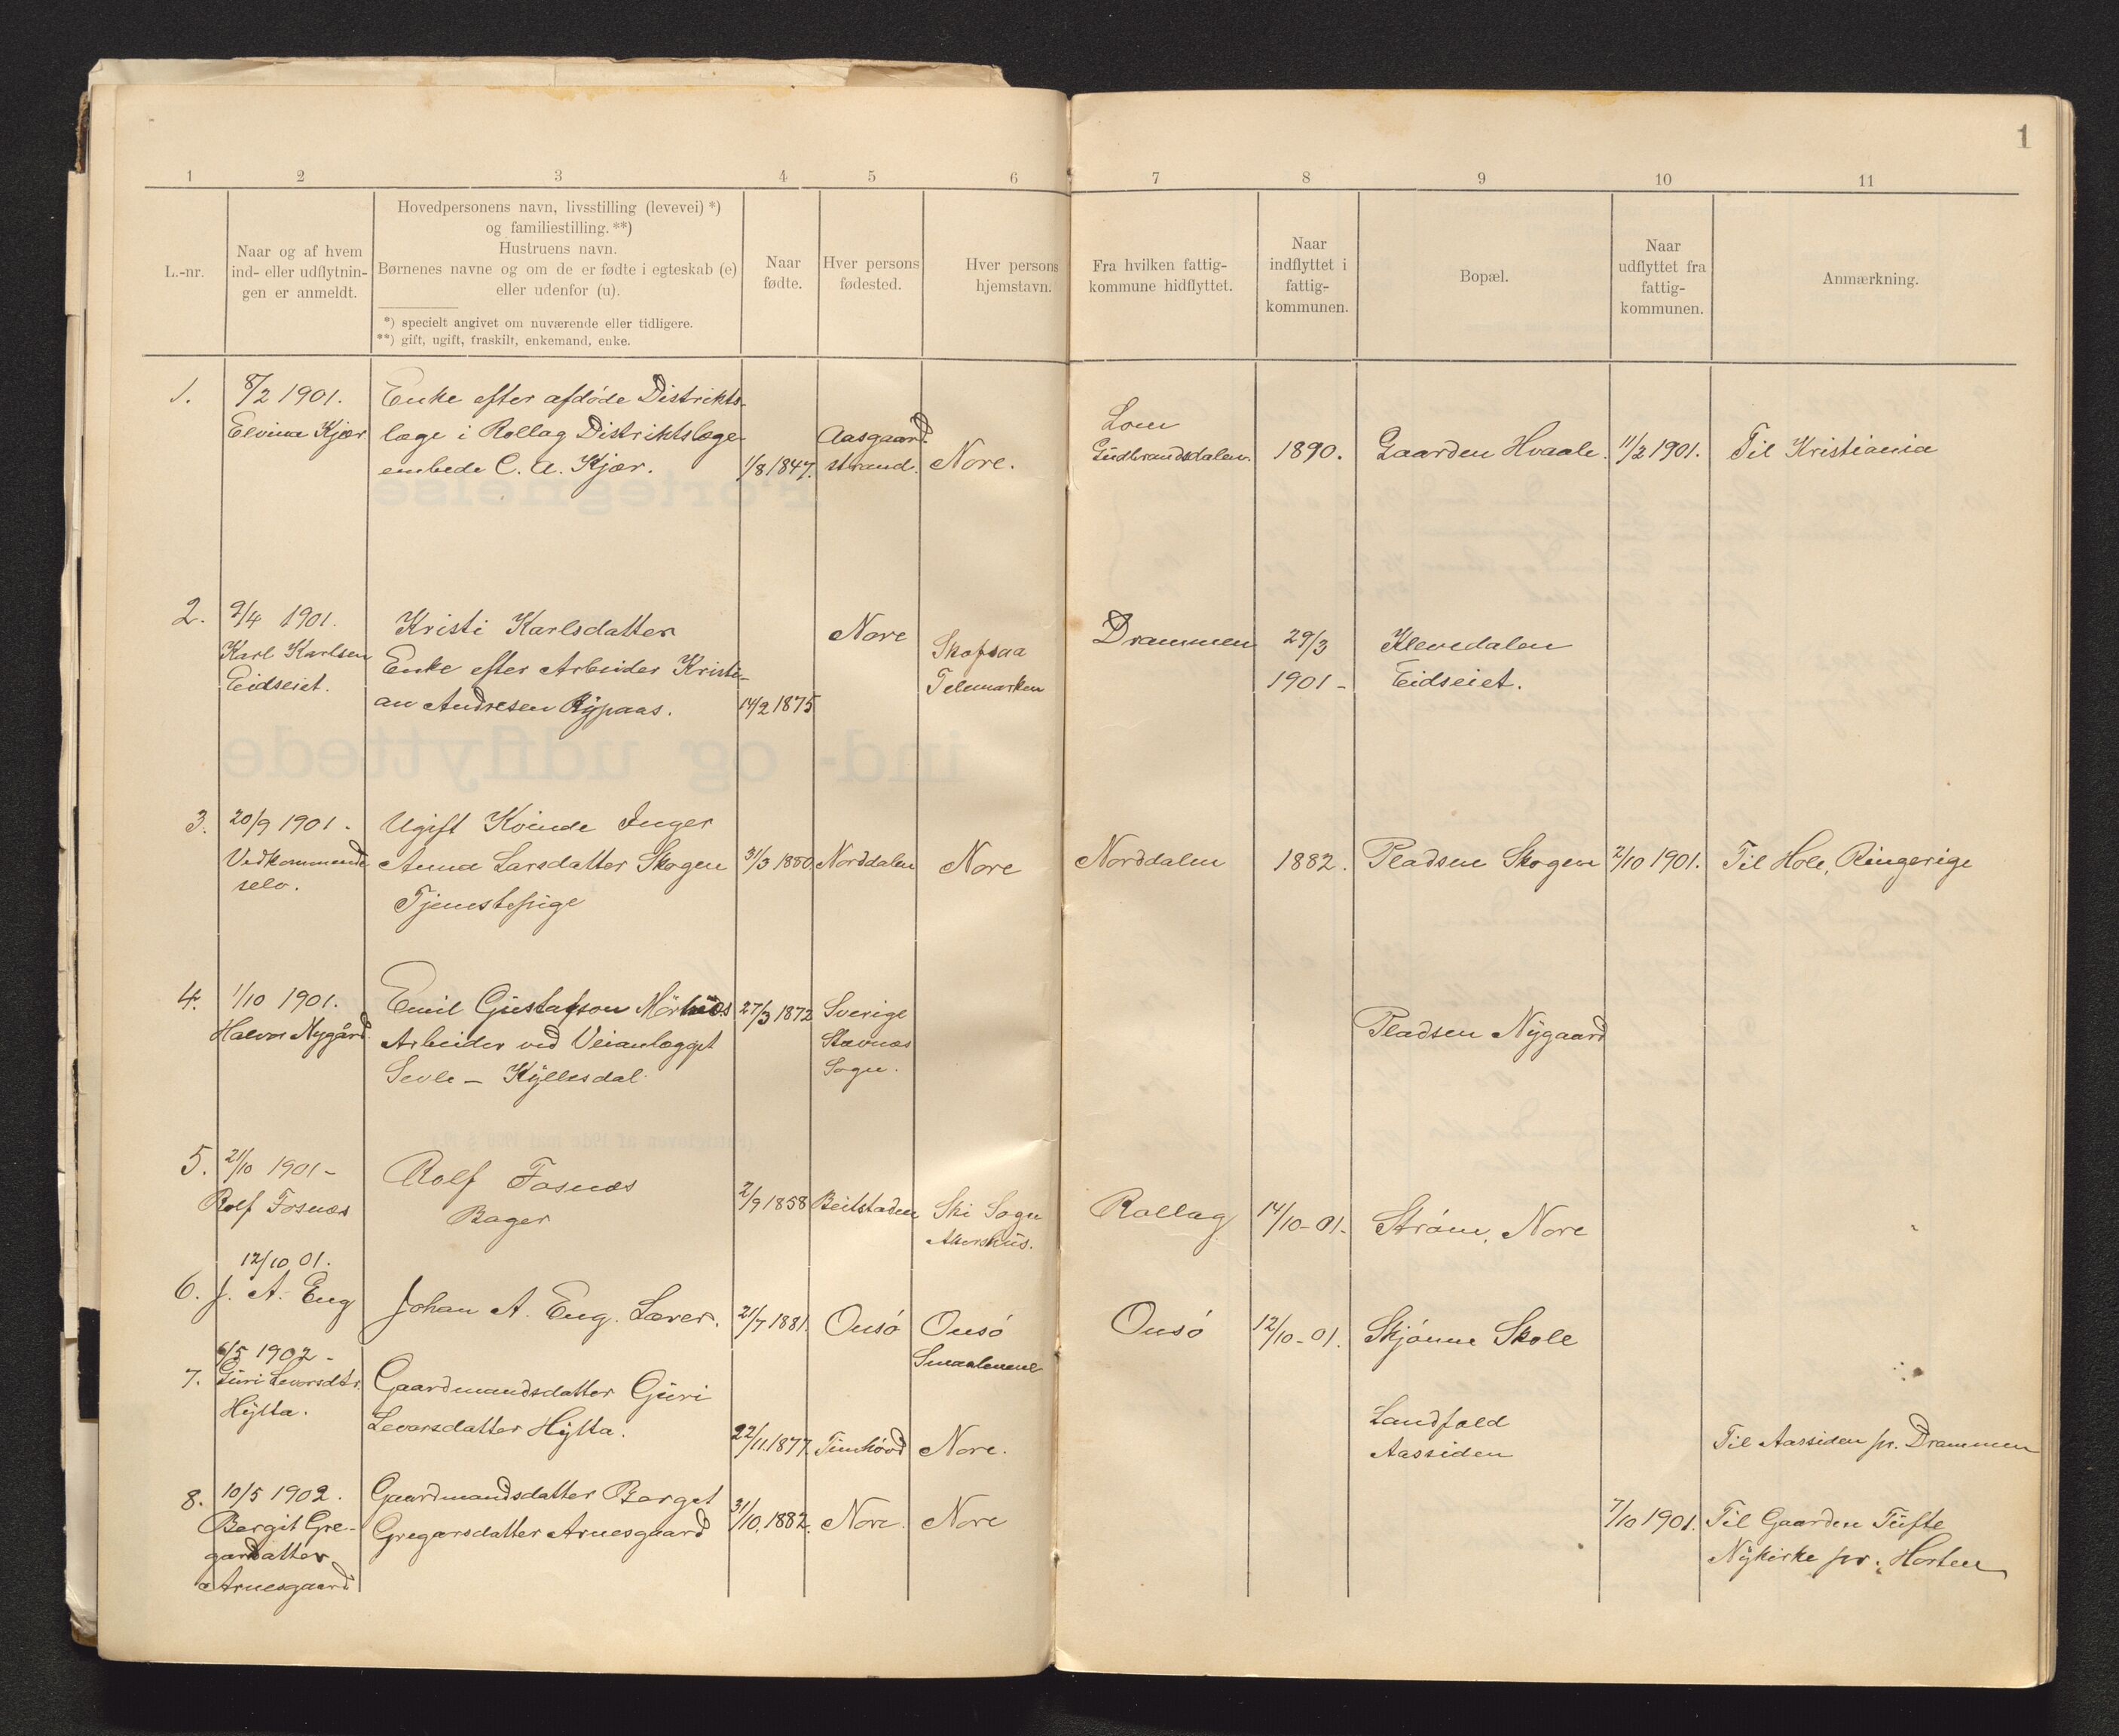 1
1 2 3 4 5 6 7 8 9 10 11
L.-nr.
Naar og af hvem
ind- eller udflytnin-
gen er anmeldt.
Hovedpersonens navn, livsstilling (levevei) *)
og familiestilling. **)
Hustruens navn.
Børnenes navne og om de er fødte i egteskab (e)
eller udenfor (u).
*) specielt angivet om nuværende eller tidligere.
**) gift, ugift, fraskilt, enkemand, enke.
Naar
fødte.
Hver persons
fødested.
Hver persons
hjemstavn.
Fra hvilken fattig-
kommune hidflyttet.
Naar
indflyttet i
fattig-
kommunen.
Bopæl.
Naar
udflyttet fra
fattig-
kommunen.
Anmærkning.
1.
8/2 1901.
Elvina Kjær
Enke efter afdøde Distrikts-
læge i Rollag Distriktslæge-
embede C. A. Kjær.
1/8 1847.
Aasgaard-
strand.
Nore.
Lom
Gudbrandsdalen.
1890.
Gaarden Hvaale.
11/2 1901.
Til Kristiania
2.
9/4 1901.
Karl Karlsen
Eidseiet.
Kristi Karlsdatter
Enke efter Arbeider Kristi-
an Andresen Rypaas.
14/2 1875
Nore
Skafsaa
Telemarken
Drammen
29/3
1901-
Klevedalen
Eidseiet.
3.
20/9 1901.
Vedkommende
selv.
Ugift Kvinde Inger
Anna Larsdatter Skogen
Tjenestepige
31/3 1880
Norddalen
Nore
Norddalen
1882.
Pladsen Skogen
2/10 1901.
Til Hole, Ringerige
4.
1/10 1901.
Halvor Nygård.
Emil Gustafson
Arbeider ved Veianlægget
Sevle - Kyllesdal.
27/3 1872
Sverige
Stavnæs
Sogn.
Pladsen Nygaard
5.
21/10 1901-
Rolf Fosnæs
Rolf Fosnæs
Bager
2/9 1858
Beitstaden
Ski Sogn
Akershus.
Rollag
14/10-01.
Strøm, Nore
12/10 01.
6. J. A. Eng
Johan A. Eng. Lærer.
21/7 1881.
Onsø
Onsø
Smaalenene
Onsø
12/10-01.
Skjønne Skole
6/5 1902-
7. Guri Levorsdtr.
Hytta.
Gaardmandsdatter Guri
Levorsdatter Hytta.
22/11.1877.
Tunhovd
Nore.
Landfald
Aassiden
Til Aassiden pr. Drammen
8.
10/5 1902.
Bergit Gre-
garsdatter
Arnesgaard
Gaardmandsdatter Berget
Gregarsdatter Arnesgaard
31/10.1882.
Nore.
Nore
7/10 1901.
Til Gaarden Tufte
Nykirke pr. Horten